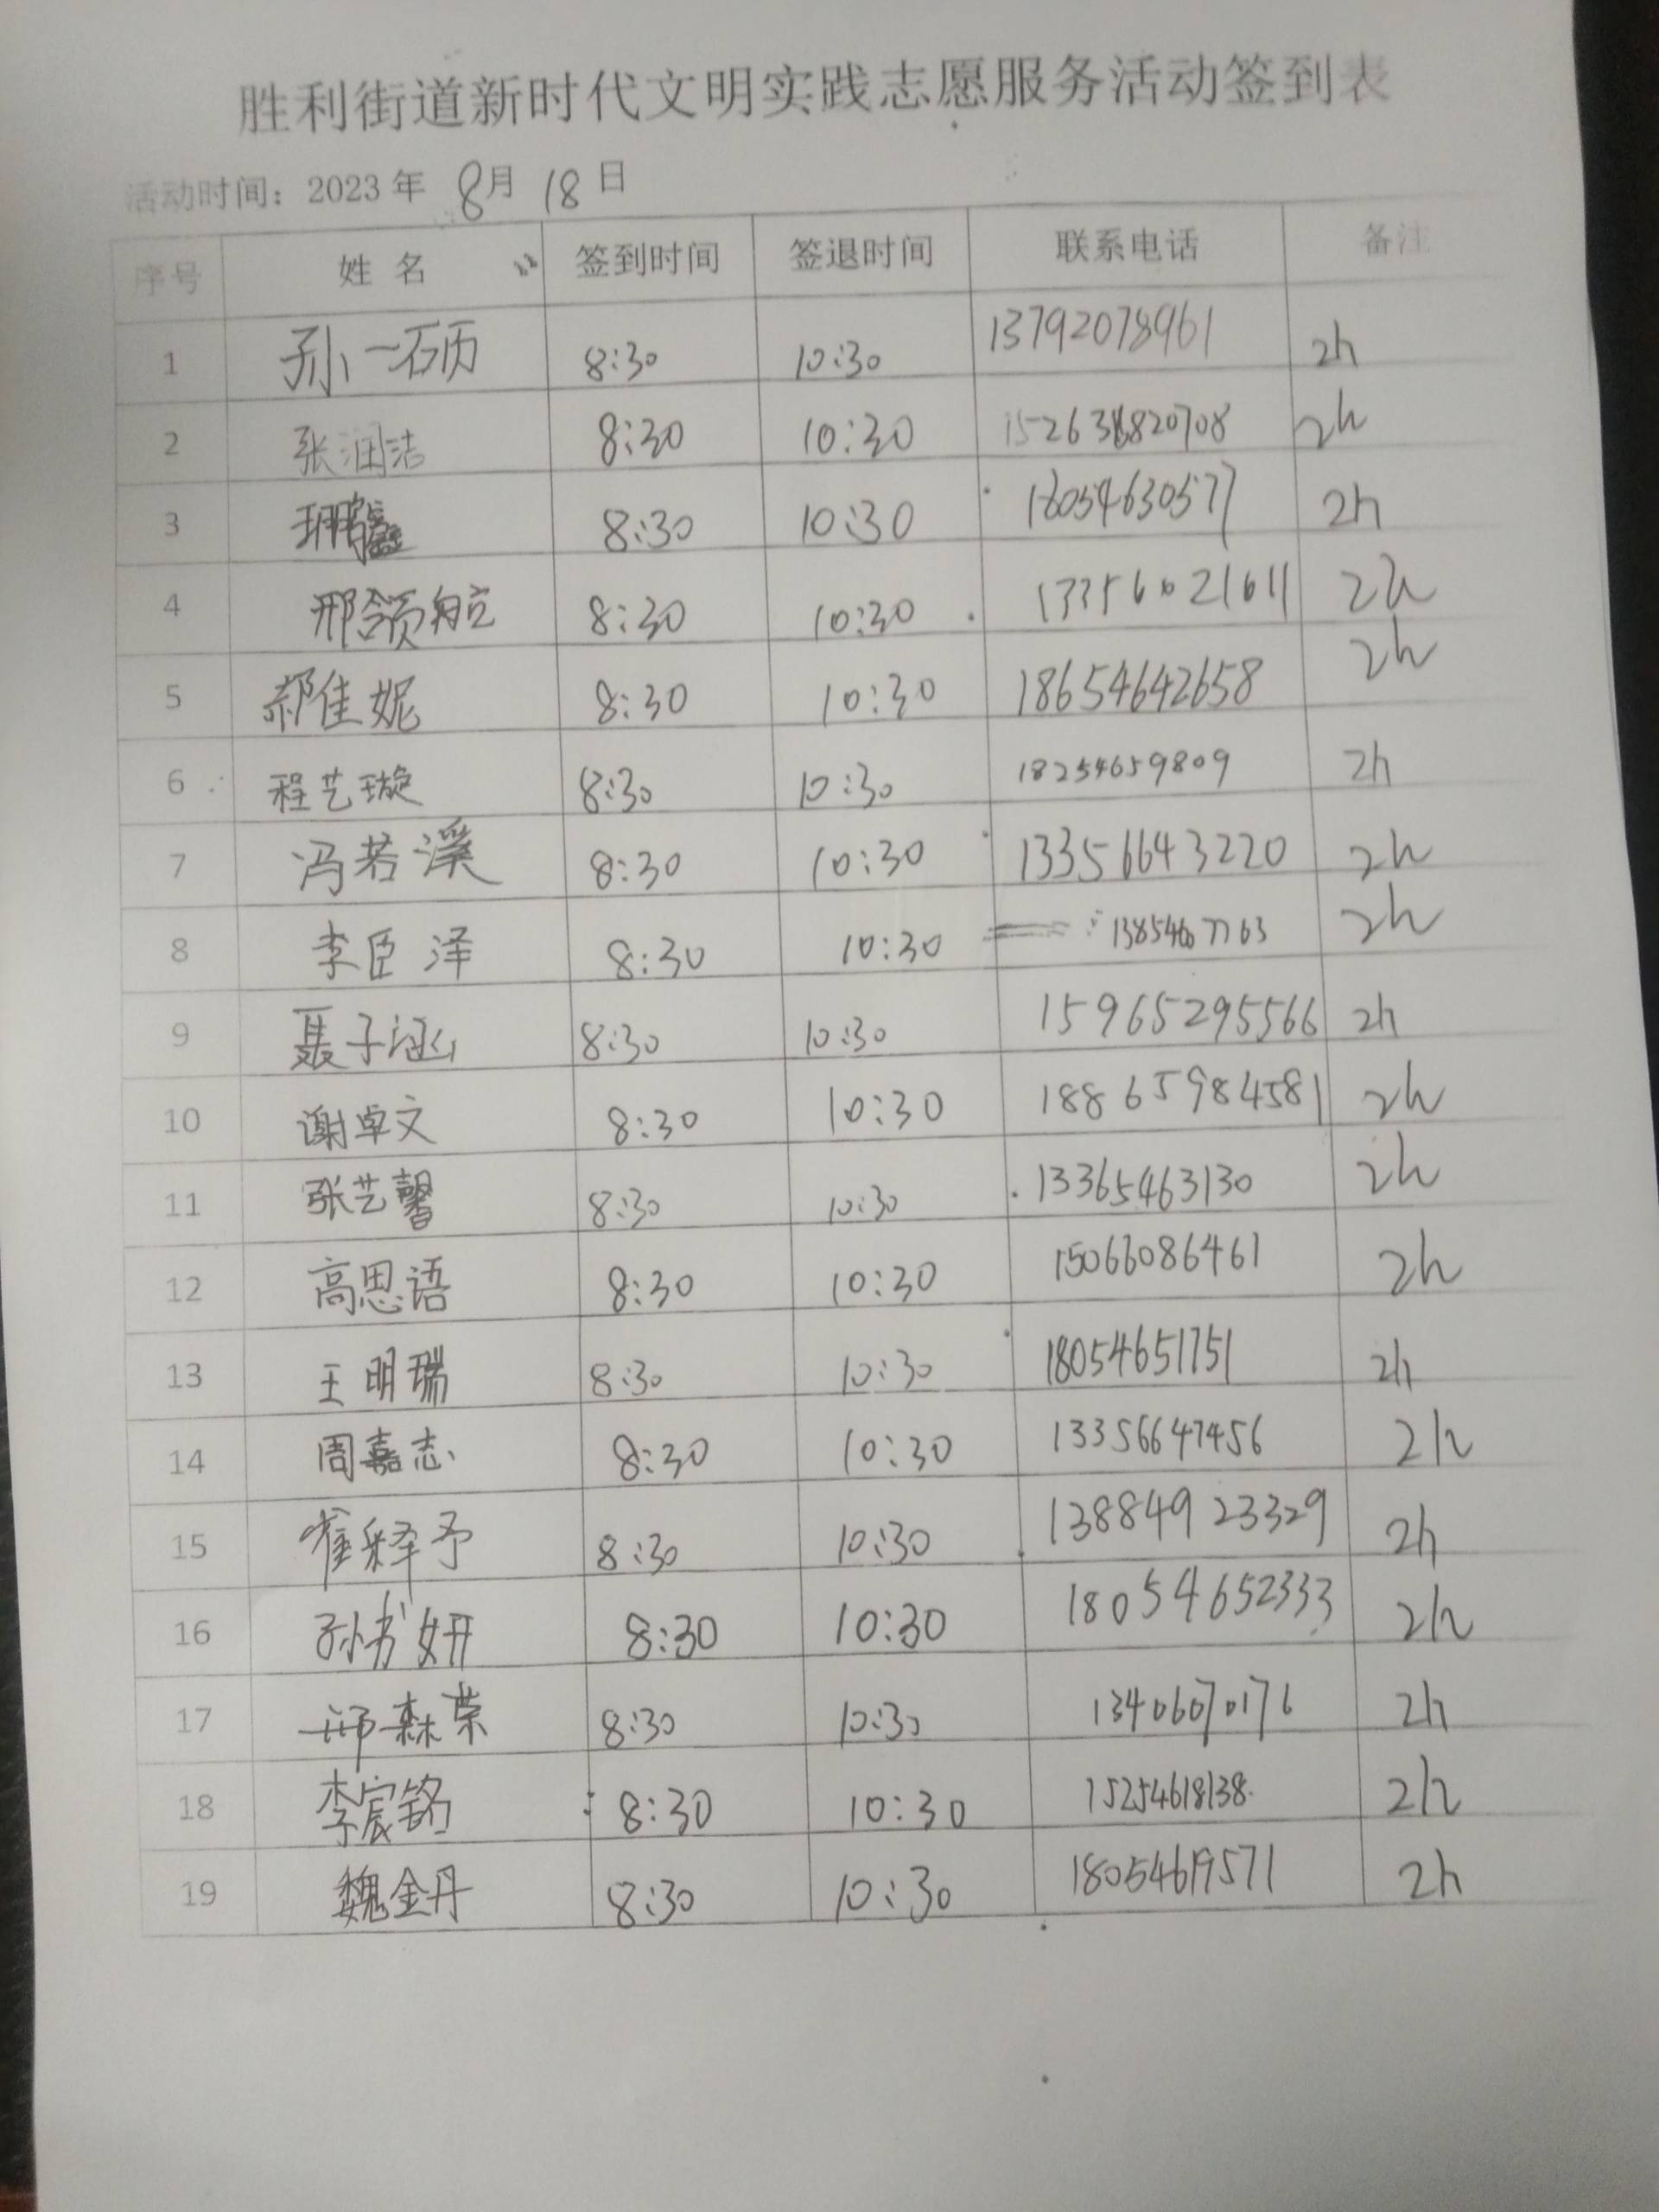 胜利街道新时代文明实践志愿服务活动签到表
活动时间：2023年 8月 18日
序号 姓名 签到时间 签退时间 联系电话 备注
1 孙一砺 8:30 10:30 13792078961 2h
2 张润洁 8:30 10:30 2h
3 8:30 10:30 18054630577 2h
4 邢颌航 8:30 10:30 2h
5 郝佳妮 8:30 10:30 18654642658 2h
6 程艺璇 8:30 10:30 18254659809 2h
7 冯若溪 8:30 10:30 13356643220 2h
8 李臣泽 8:30 10:30 2h
9 聂子涵 8:30 10:30 15965295566 2h
10 谢卓文 8:30 10:30 18865984581 2h
11 张艺馨 8:30 10:30 13365463130 2h
12 高思语 8:30 10:30 15066086461 2h
13 王明瑞 8:30 10:30 18054651751 2h
14 周嘉志 8:30 10:30 13356647456 2h
15 崔释予 8:30 10:30 13884923329 2h
16 孙书妍 8:30 10:30 18054652333 2h
17 森荣 8:30 10:30 13406070176 2h
18 李宸铭 8:30 10:30 15254618138 2h
19 魏金丹 8:30 10:30 18054619571 2h